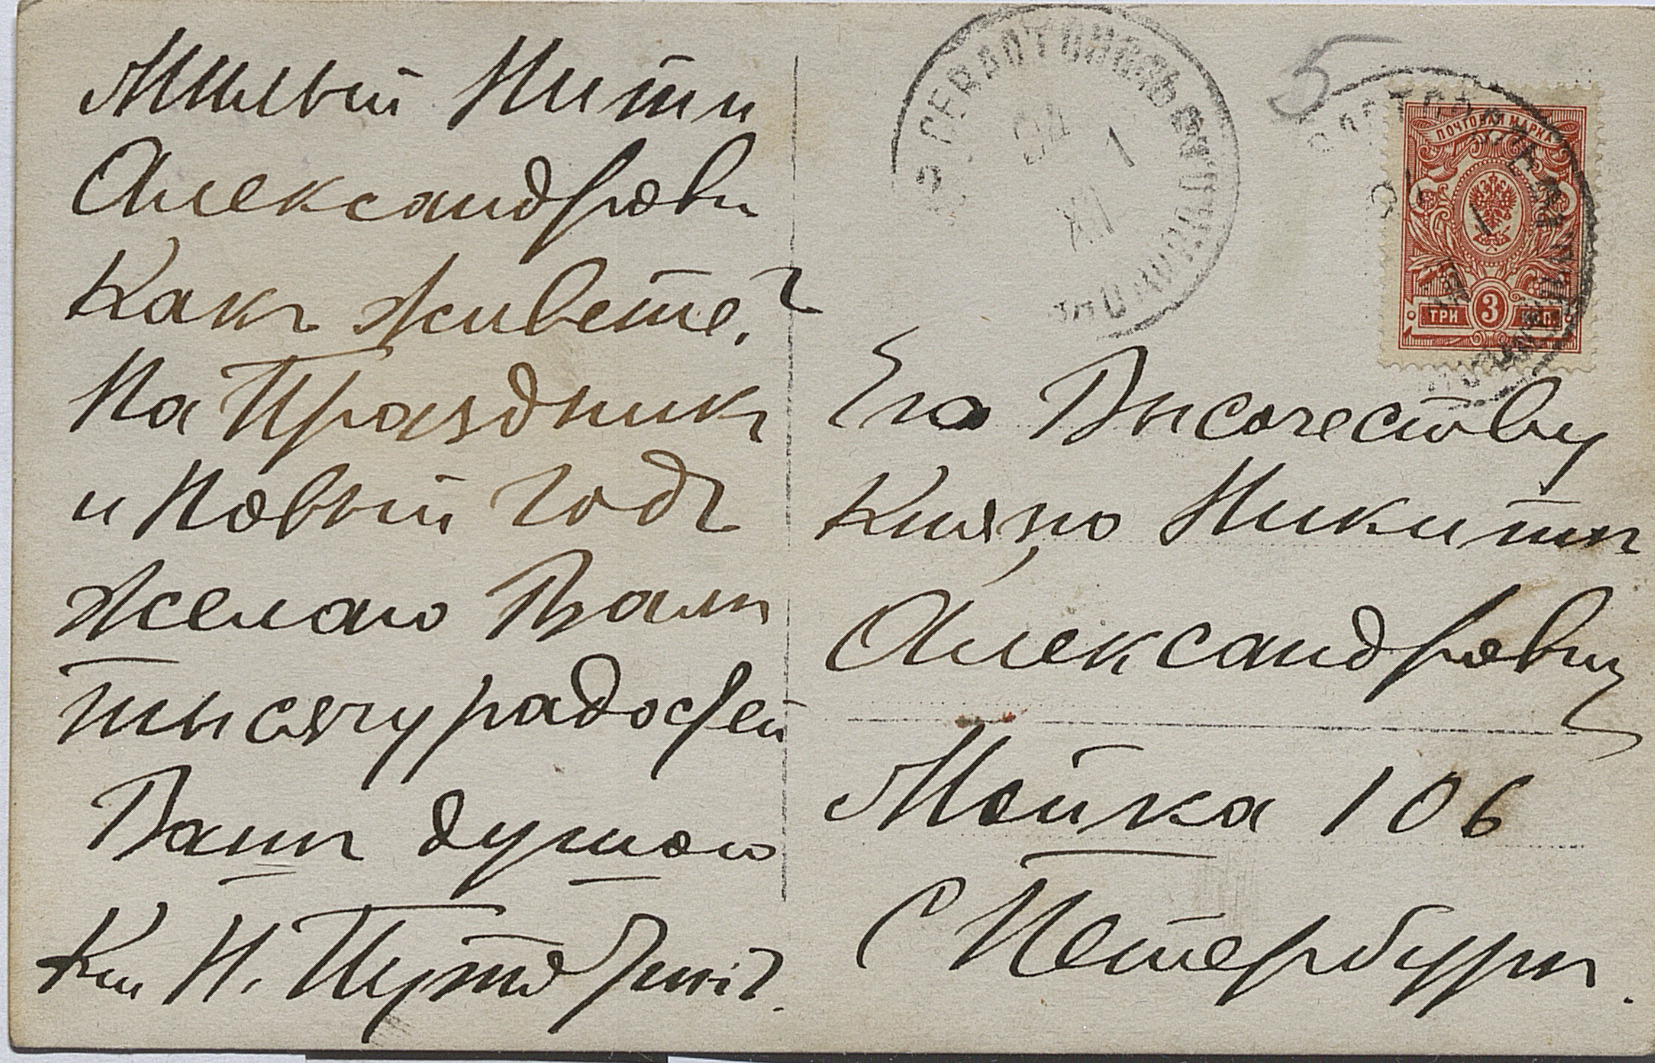 Милый Никита
Александрович
Какъ живете?
На Праздникъ
и Новый Годъ
Желаю Вамъ
тысячу радостей
Вашъ душою
Кн Н.
5
СЕВАСТОПОЛЬ
ПОЧТОВАЯ МАРКА
ТРИ 3 КОП.
Его Высочеству
Князю Никитѣ
Александровичу
Мойка 106
С Петербургъ.